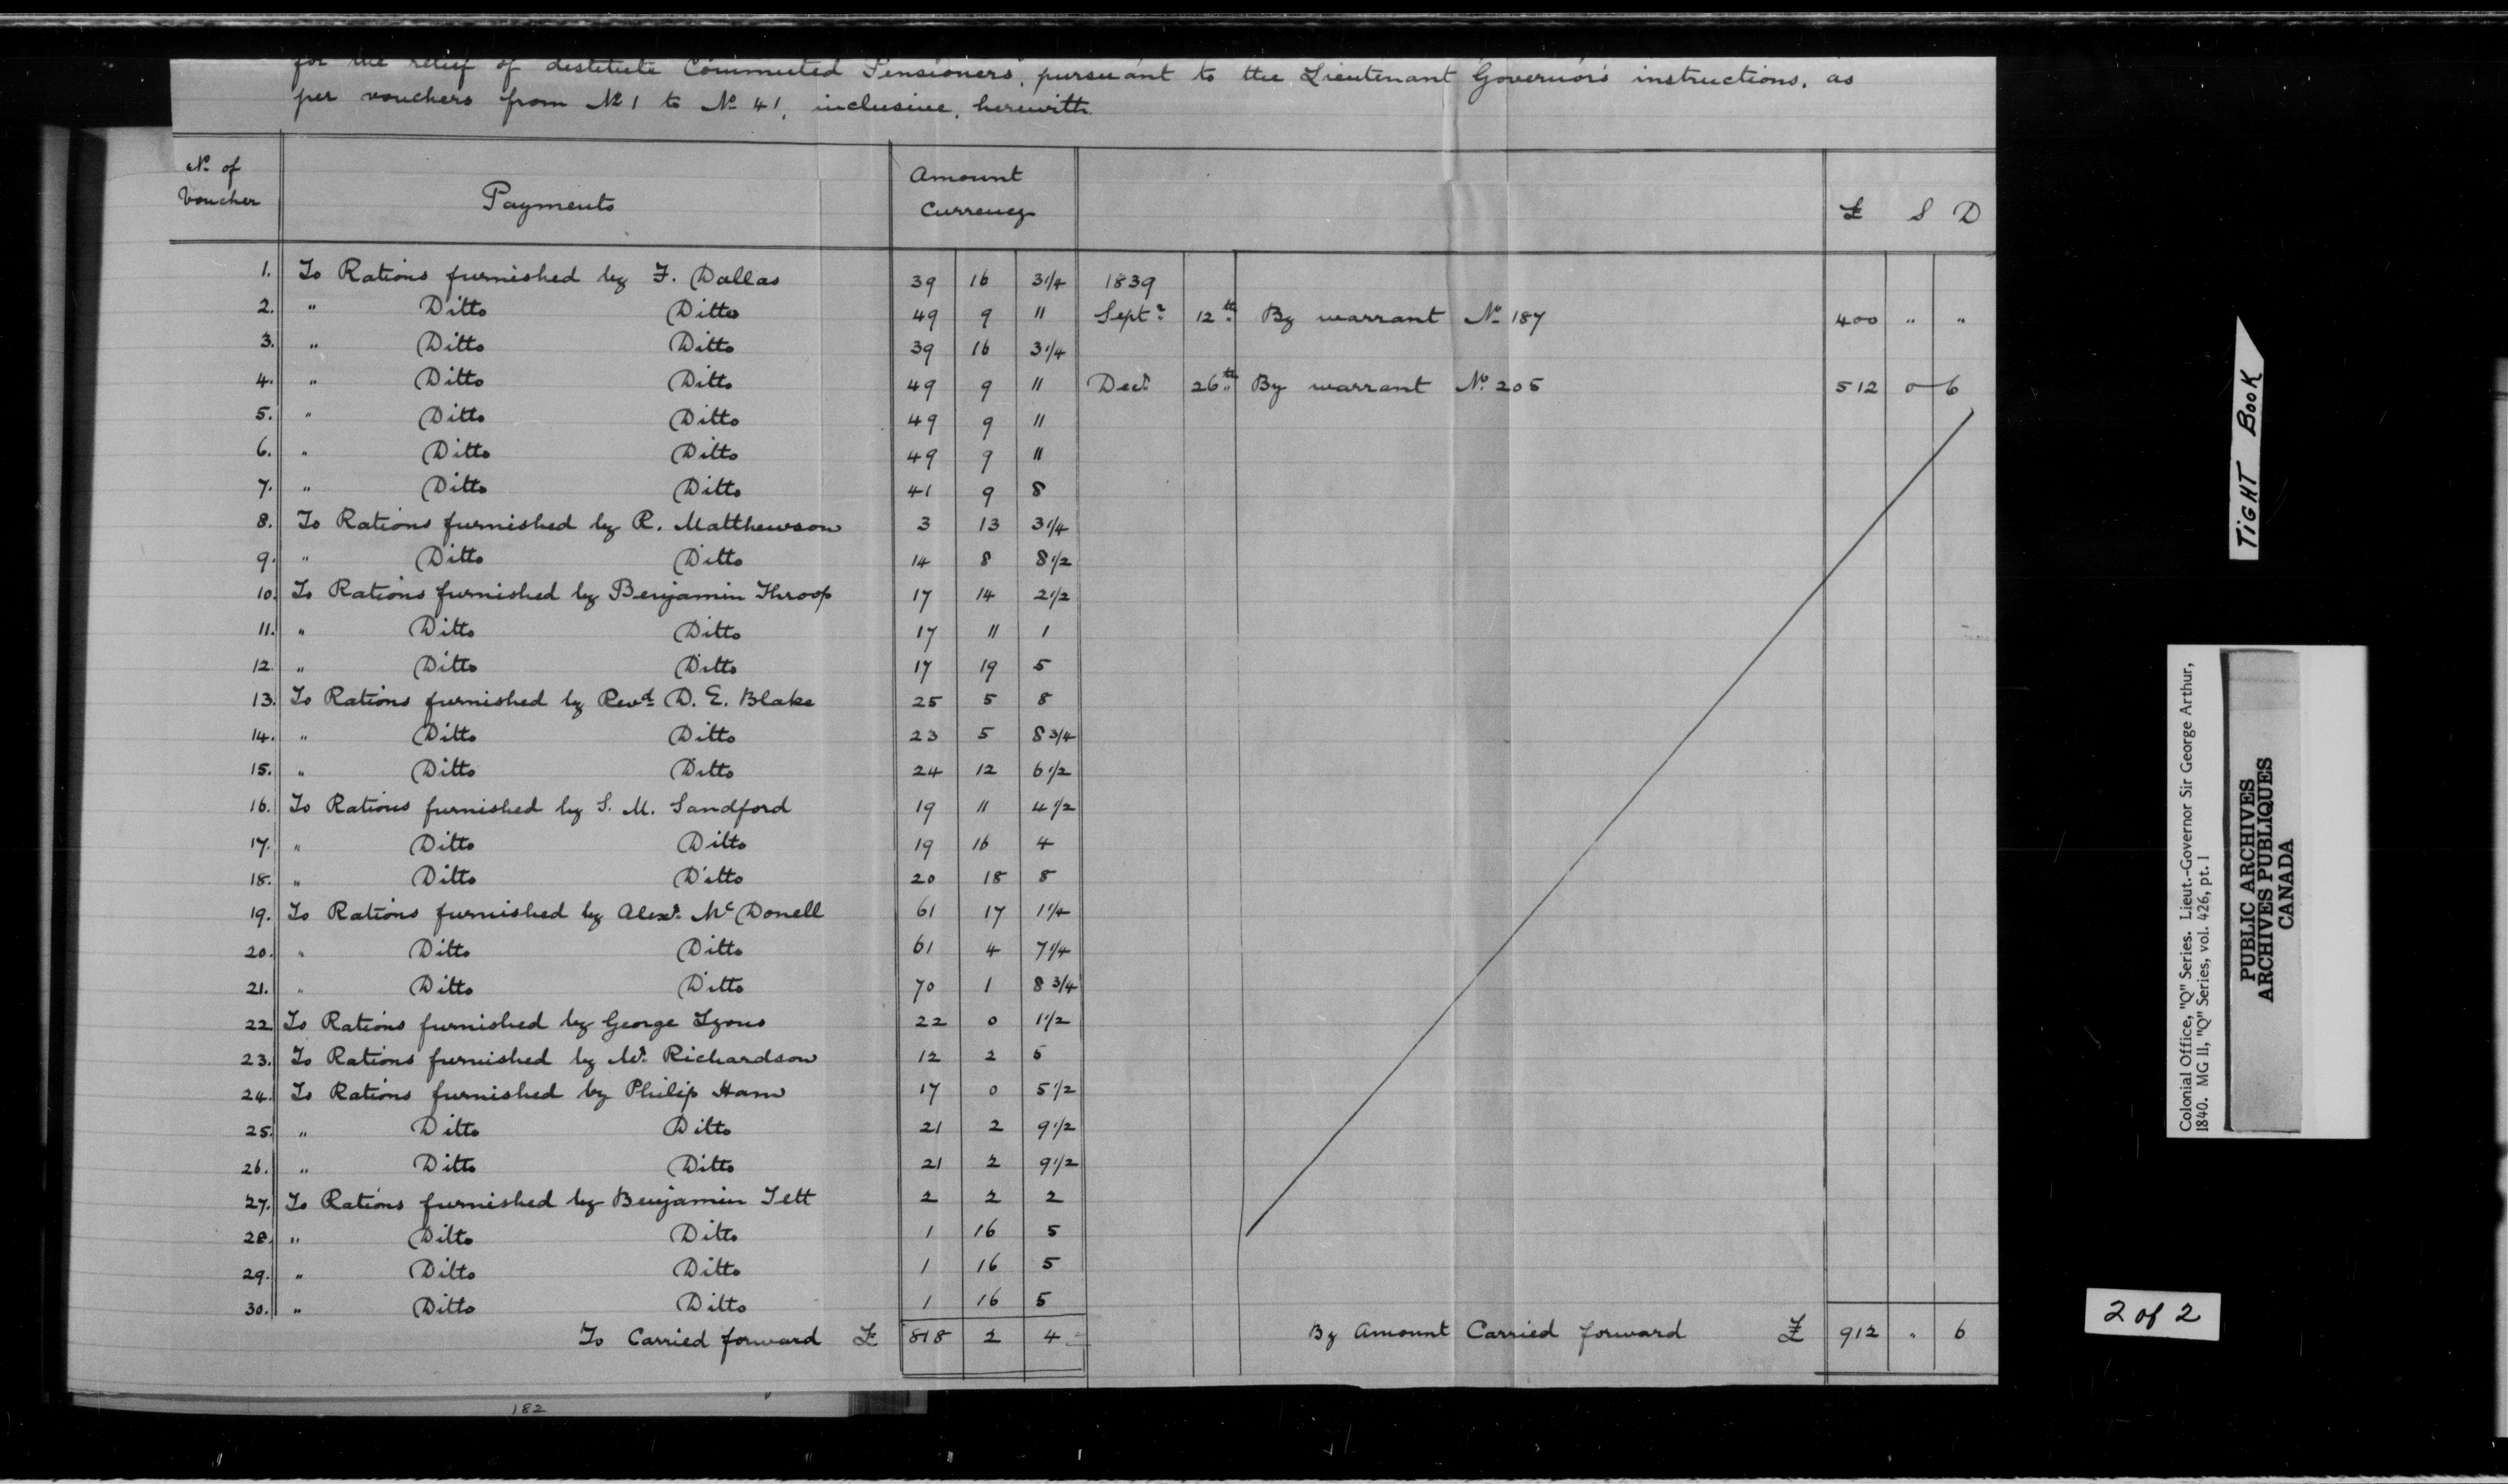 for the relief of destitute Commuted Pensioners, pursuant to the Lieutenant Governor's instructions, as
per vouchers from No 1 to No 41, inclusive, herewith.
No. of Voucher Payments Amount Currency £ S D
1. To Rations furnished by F. Dallas 39 16 3 1/4 1839
2. " Ditto Ditto 49 9 11 Septr. 12th. By warrant No 187 400 " "
3. " Ditto Ditto 39 16 3 1/4
4. " Ditto Ditto 49 9 11 Decr. 26th. By warrant No. 205 512 0 6
5. " Ditto Ditto 49 9 11
6. " Ditto Ditto 49 9 11
7. " Ditto Ditto 41 9 8
8. To Rations furnished by R. Matthewson 3 13 3 1/4
9. " Ditto Ditto 14 8 8 1/2
10. To Rations furnished by Benjamin Throop 17 14 2 1/2
11. " Ditto Ditto 17 11 1
12. " Ditto Ditto 17 19 5
13. To Rations furnished by Revd. D. E. Blake 25 5 8
14. " Ditto Ditto 23 5 8 3/4
15. " Ditto Ditto 24 12 6 1/2
16. To Rations furnished by S. M. Sandford 19 11 4 1/2
17. " Ditto Ditto 19 16 4
18. " Ditto Ditto 20 18 8
19. To Rations furnished by Alexr. McDonell 61 17 1 1/4
20. " Ditto Ditto 61 4 7 1/4
21. " Ditto Ditto 70 1 8 3/4
22 To Rations furnished by George Lyons 22 0 1 1/2
23. To Rations furnished by Mr. Richardson 12 2 5
24. To Rations furnished by Philip Ham 17 0 5 1/2
25. " Ditto Ditto 21 2 9 1/2
26. " Ditto Ditto 21 2 9 1/2
27. To Rations furnished by Benjamin Tett 2 2 2
28. " Ditto Ditto 1 16 5
29. " Ditto Ditto 1 16 5
30. " Ditto Ditto 1 16 5
To Carried forward £ 818 2 4 By Amount Carried forward £ 912 " 6
182
TIGHT BOOK
Colonial Office, "Q" Series. Lieut.-Governor Sir George Arthur,
1840. MG 11, "Q" Series, vol. 426, pt. 1
PUBLIC ARCHIVES
ARCHIVES PUBLIQUES
CANADA
2 of 2